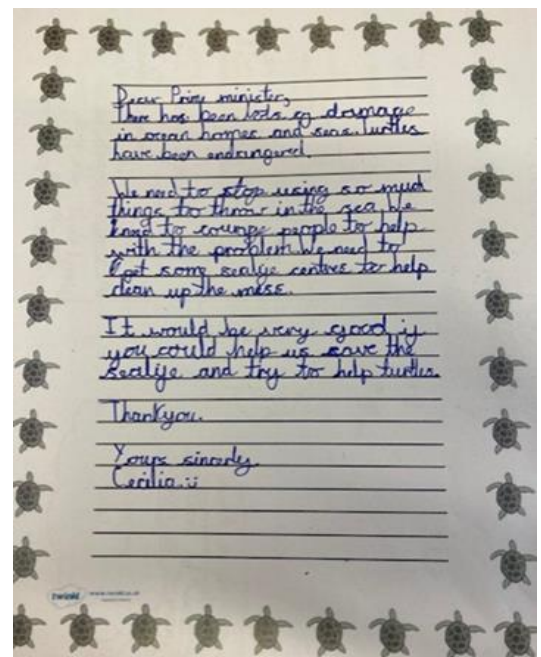 Dear Prime minister,
There has been lots of damage
in ocean homes and seas. Turtles
have been endangered.
We need to stop using so much
things to throw in the sea. We
need to courage people to help
with the problem. We need to
get some sealife centres to help
clean up the mess.
It would be very good if
you could help us save the
sealife and try to help turtles.
Thankyou.
Yours sincerly
Cecilia :)
twinkl www.twinkl.co.uk